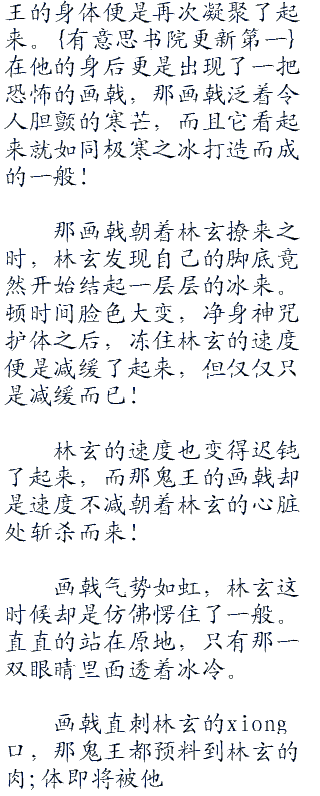 王的身体便是再次凝聚了起
来。{有意思书院更新第一}
在他的身后更是出现了一把
恐怖的画戟，那画戟泛着令
人胆颤的寒芒，而且它看起
来就如同极寒之冰打造而成
的一般！
那画戟朝着林玄撩来之
时，林玄发现自己的脚底竟
然开始结起一层层的冰来。
顿时间脸色大变，净身神咒
护体之后，冻住林玄的速度
便是减缓了起来，但仅仅只
是减缓而已！
林玄的速度也变得迟钝
了起来，而那鬼王的画戟却
是速度不减朝着林玄的心脏
处斩杀而来！
画戟气势如虹，林玄这
时候却是仿佛愣住了一般。
直直的站在原地，只有那一
双眼睛里面透着冰冷。
画戟直刺林玄的xiong
口，那鬼王都预料到林玄的
肉;体即将被他